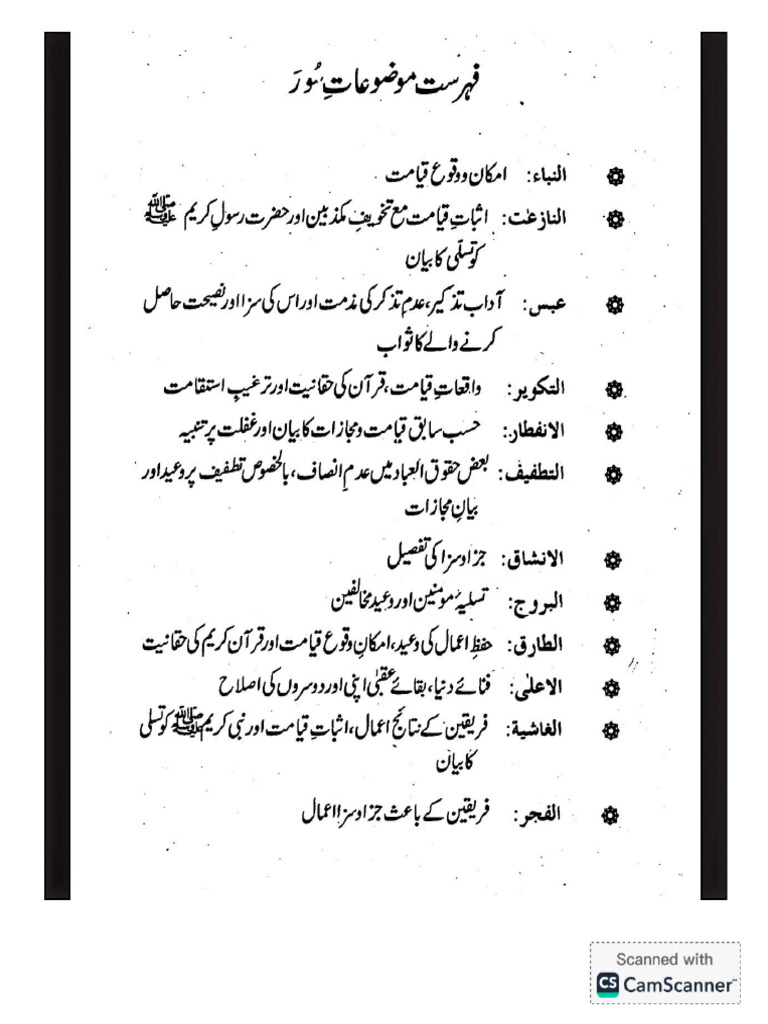 فہرست موضوعاتِ سُوَرَ
النباء: امکان و وقوع قیامت
النازعٰت: اثباتِ قیامت مع تخویفِ مکذبین اور حضرت رسولِ کریم ﷺ
کو تسلّی کا بیان
عبس: آداب تذکیر، عدمِ تذکر کی مذمت اور اس کی سزا اور نصیحت حاصل
کرنے والے کا ثواب
التکویر: واقعاتِ قیامت، قرآن کی حقانیت اور ترغیبِ استقامت
الانفطار: حسب سابق قیامت و مجازات کا بیان اور غفلت پر تنبیہ
التطفیف: بعض حقوق العباد میں عدمِ انصاف، بالخصوص تطفیف پر وعید اور
بیانِ مجازات
الانشاق: جزا و سزا کی تفصیل
البروج: تسلیۂ مومنین اور وعید مخالفین
الطارق: حفظِ اعمال کی وعید، امکانِ وقوع قیامت اور قرآن کریم کی حقانیت
الاعلٰی: فنائے دنیا، بقائے عقبٰی اپنی اور دوسروں کی اصلاح
الغاشیة: فریقین کے نتائج اعمال، اثباتِ قیامت اور نبی کریم ﷺ کو تسلی
کا بیان
الفجر: فریقین کے باعث جزا و سزا اعمال
Scanned with
CS CamScanner™